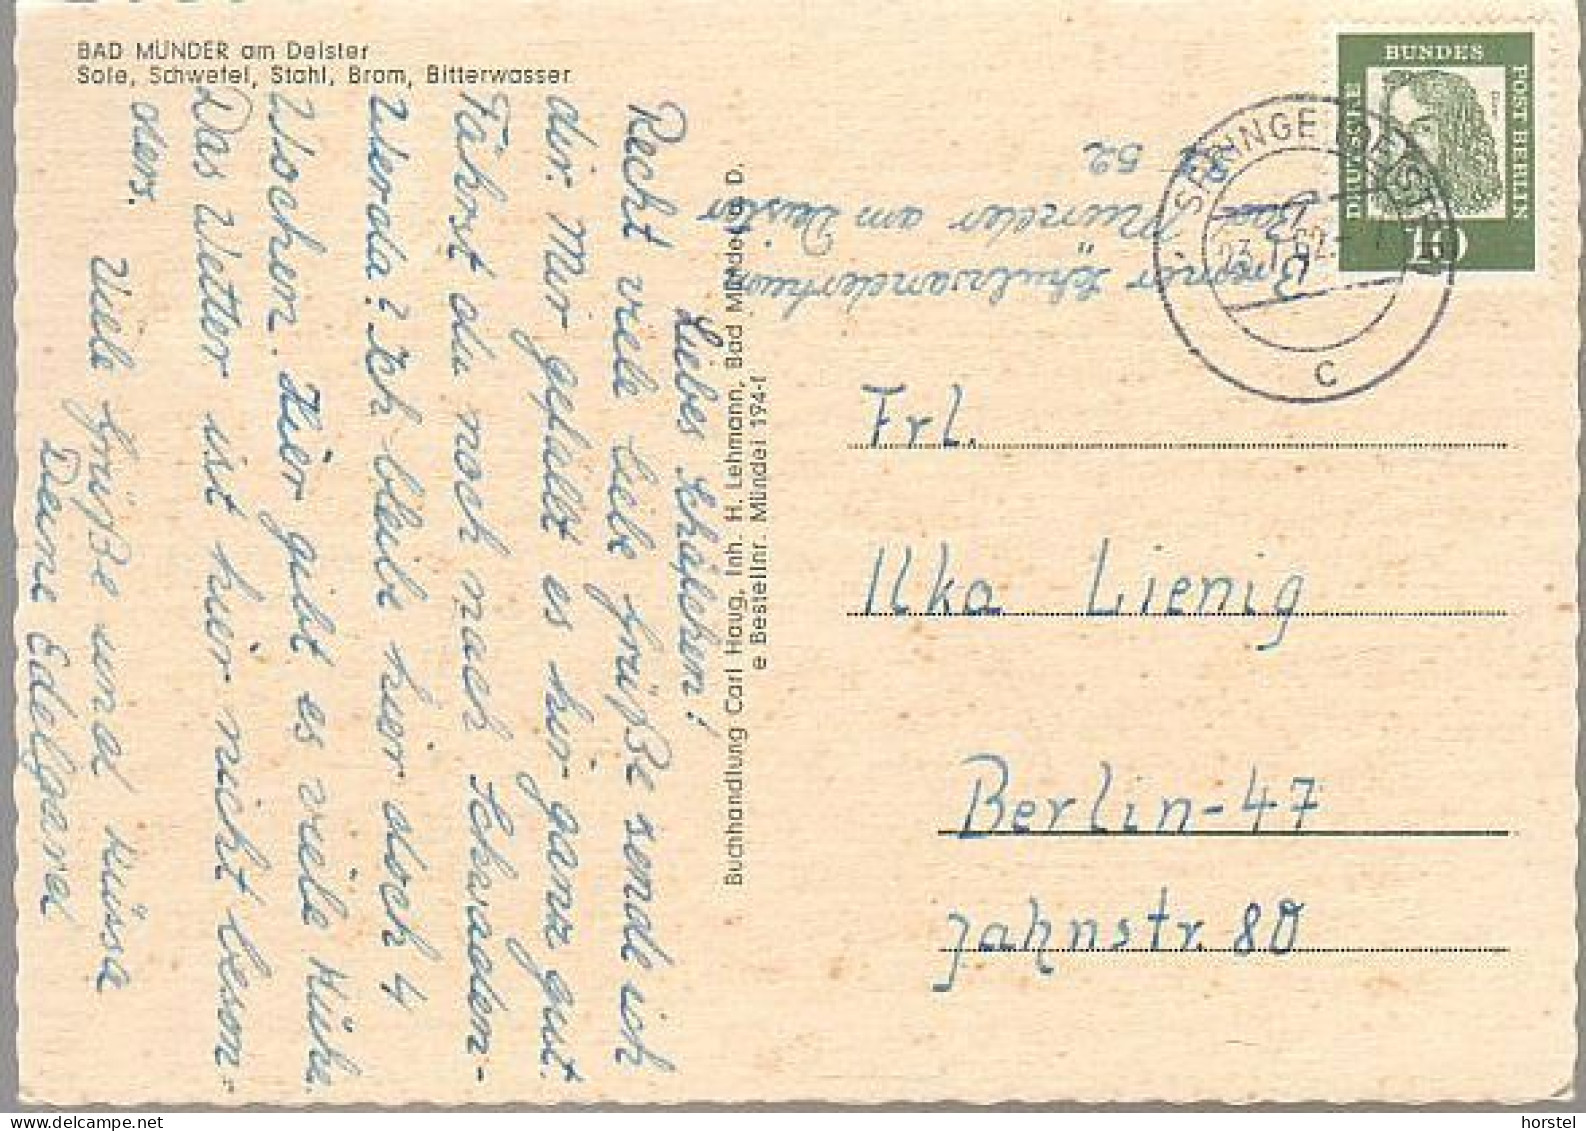 BAD MÜNDER am Deister
Sole, Schwefel, Stahl, Brom, Bitterwasser
Liebes Schäfchen!
Recht viele liebe Grüße sende ich
dir. Mir gefällt es hir ganz gut.
Fährst du noch nach Schwaden-
Werda? Ich bleibe hier doch 4
Wochen. Hier gibt es viele Kühe.
Das Wetter ist hier nicht beson-
ders.
Viele Grüße und Küsse
Deine Edelgard
Buchhandlung Carl Haug, Inh. H. Lehmann, Bad Münder a. D.
e Bestellnr. Mündei 194-f
Bremer Schulwanderheim
Münder am Deister
52
DEUTSCHE
BUNDES
POST BERLIN
Dürer
10
SPRINGE (DEISTER)
23. 62.
c
Frl.
Ilka Lienig
Berlin-47
Jahnstr. 80
horstel
www.delcampe.net